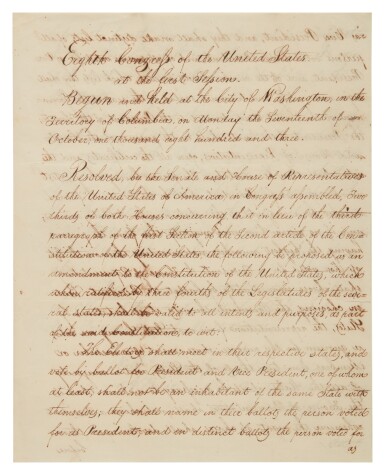 Eighth Congress of the United States
at the first Session.
Begun and held at the City of Washington, in the
Territory of Columbia, on Monday the Seventeenth of
October, one thousand eight hundred and three.
Resolved, by the Senate and House of Representatives
of the United States of America in Congress assembled, Two
thirds of both Houses concurring that in lieu of the third
paragraph of the first Section of the Second article of the Con-
stitution of the United States the following be proposed as an
amendment to the Constitution of the United States, which
when ratified by three fourths of the Legislatures of the seve-
ral states, shall be valid to all intents and purposes, as part
of the said Constitution, to wit:
The Electors shall meet in their respective states, and
vote by ballot for President and Vice President, one of whom
at least, shall not be an inhabitant of the same State with
themselves; they shall name in their ballots the person voted
for as President, and in distinct ballots the person voted for
as